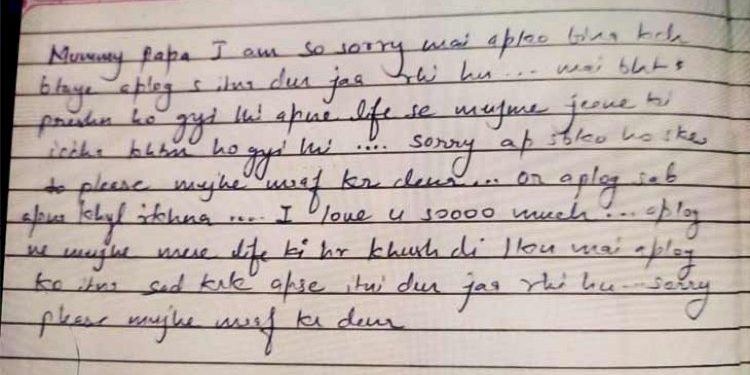 Mummy Papa I am so sorry mai apko bina kch
btaye aplog s itne dur jaa rhi hu... mai bht
preshn ho gyi thi apne life se mujme jeene ki
iccha khtm ho gyi thi .... sorry ap sbko ho ske
to please mujhe maaf kr dena... or aplog sab
apna khyl rkhna .... I love u soooo much ... aplog
ne mujhe mere life ki hr khush di mai aplog
ko itna sad krk apse itni dur jaa rhi hu ... sorry
please mujhe maaf kr dena